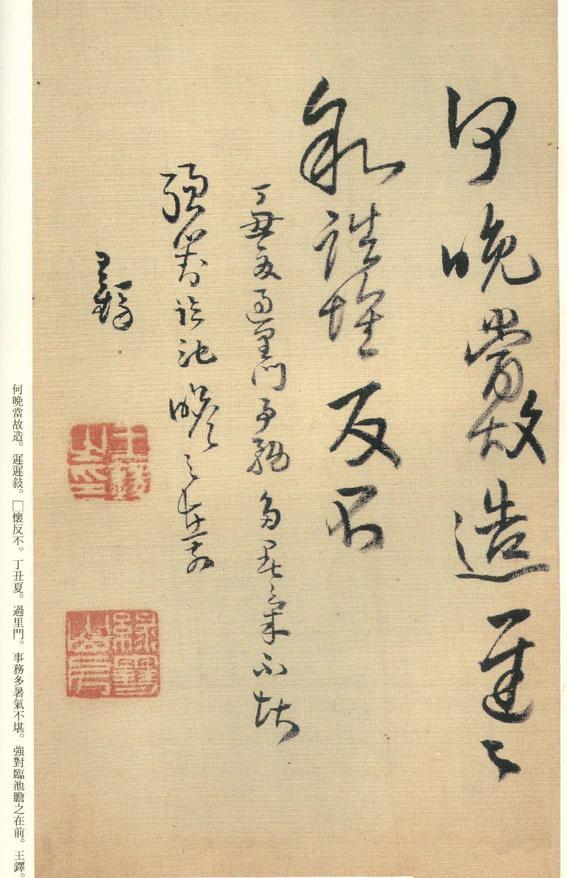 何晚當故造遲〻
敍懷反不
丁丑夏過里門事務多暑氣不堪
強對臨池瞻之在前
王鐸
王鐸之印
何晚當故造。遲遲敍。□懷反不。丁丑夏。過里門。事務多暑氣不堪。強對臨池瞻之在前。王鐸。